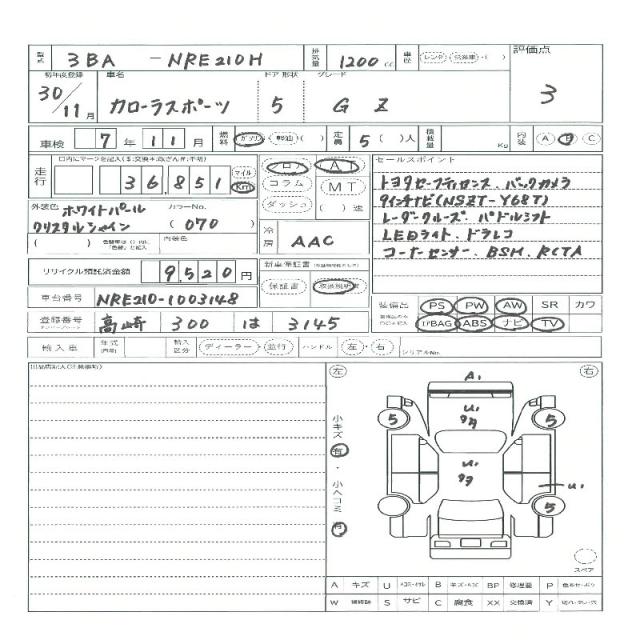 型式 3BA - NRE210H 排気量 1200 cc 車歴 レンタ ( ) 評価点
初年度登録 車名 ドア 形状 グレード
30/11月 カローラスポーツ 5 G Z 3
車検 7年 11月 燃料 ガソリン・軽油・( ) 定員 5( )人 積載量 Kg 内装 A B C
走行 36,851 マイル Km フロア AT セールスポイント
コラム MT トヨタセーフティセンス、バックカメラ
外装色 ホワイトパール カラーNo. ダッシュ ( )速 9インチナビ(NSZT-Y68T)
クリスタルシャイン (070) レーダークルーズ パドルシフト
( ) 内装色 冷房 AAC LEDライト、ドラレコ
コーナーセンサー、BSM、RCTA
リサイクル預託済金額 9,520円 新車保証書
保証書 取扱説明書
車台番号 NRE210-1003148 装備品 PS PW AW SR カワ
登録番号 高崎 300 は 3145 ｴｱBAG ABS ナビ TV
輸入車 年式 輸入区分 ディーラー・並行 ハンドル 左・右 シリアルNo.
左 右
A1
U1
5 5
小キズ 有・小ヘコミ 有
U1
U1
5
スペア
A キズ U B キズ・ヘコ BP 修理要 P
W S サビ C 腐食 XX 交換済 Y